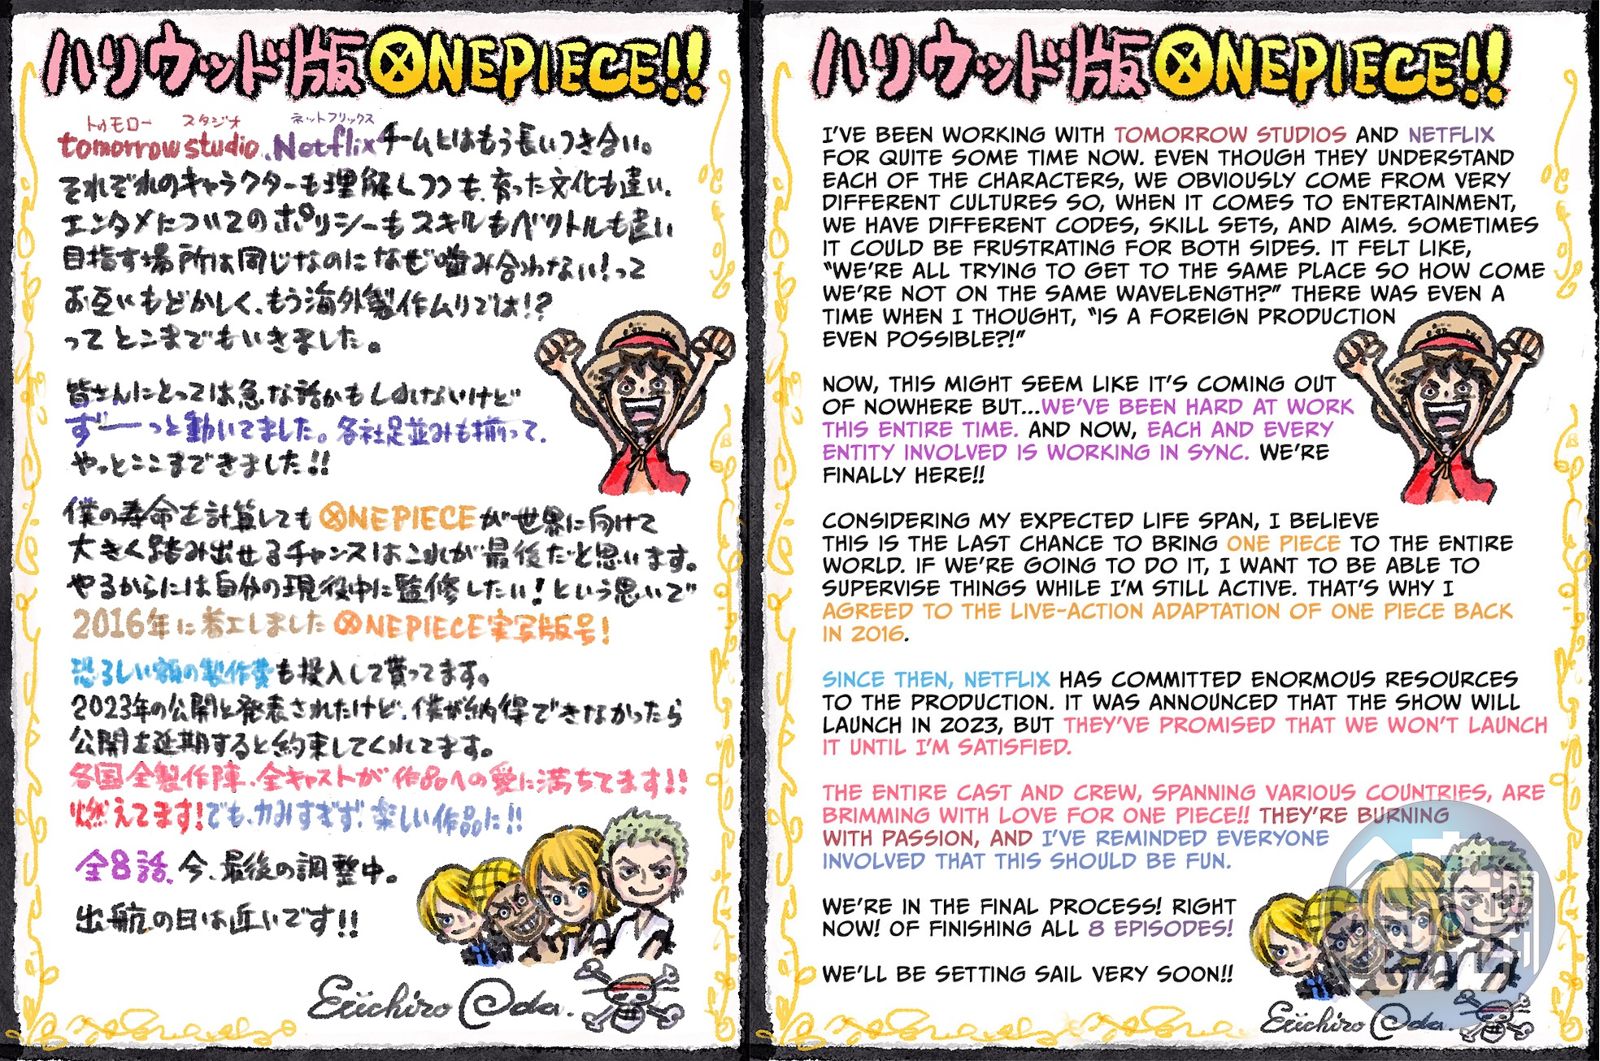 ハリウッド版ONEPIECE!!
トゥモロー スタジオ ネットフリックス
tomorrow studio、Netflixチームとはもう長いつき合い。
それぞれのキャラクターも理解しつつも、育った文化も違い、
エンタメについてのポリシーもスキルもベクトルも違い
目指す場所は同じなのになぜ噛み合わない!って
お互いもどかしく、もう海外製作ムリでは!?
ってとこまでもいきました。
皆さんにとっては急な話かもしれないけど
ずーーっと動いてました。各社足並みも揃って、
やっとここまできました!!
僕の寿命を計算しても ONEPIECEが世界に向けて
大きく踏み出せるチャンスはこれが最後だと思います。
やるからには自分の現役中に監修したい!という思いで
2016年に着工しました ONEPIECE実写版号!
恐ろしい額の製作費も投入して貰ってます。
2023年の公開と発表されたけど、僕が納得できなかったら
公開を延期すると約束してくれてます。
各国全製作陣、全キャストが作品への愛に満ちてます!!
燃えてます!でも、力みすぎず、楽しい作品に!!
全8話、今、最後の調整中。
出航の日は近いです!!
Eiichiro Oda.
ハリウッド版ONEPIECE!!
I'VE BEEN WORKING WITH TOMORROW STUDIOS AND NETFLIX
FOR QUITE SOME TIME NOW. EVEN THOUGH THEY UNDERSTAND
EACH OF THE CHARACTERS, WE OBVIOUSLY COME FROM VERY
DIFFERENT CULTURES SO, WHEN IT COMES TO ENTERTAINMENT,
WE HAVE DIFFERENT CODES, SKILL SETS, AND AIMS. SOMETIMES
IT COULD BE FRUSTRATING FOR BOTH SIDES. IT FELT LIKE,
"WE'RE ALL TRYING TO GET TO THE SAME PLACE SO HOW COME
WE'RE NOT ON THE SAME WAVELENGTH?" THERE WAS EVEN A
TIME WHEN I THOUGHT, "IS A FOREIGN PRODUCTION
EVEN POSSIBLE?!"
NOW, THIS MIGHT SEEM LIKE IT'S COMING OUT
OF NOWHERE BUT...WE'VE BEEN HARD AT WORK
THIS ENTIRE TIME. AND NOW, EACH AND EVERY
ENTITY INVOLVED IS WORKING IN SYNC. WE'RE
FINALLY HERE!!
CONSIDERING MY EXPECTED LIFE SPAN, I BELIEVE
THIS IS THE LAST CHANCE TO BRING ONE PIECE TO THE ENTIRE
WORLD. IF WE'RE GOING TO DO IT, I WANT TO BE ABLE TO
SUPERVISE THINGS WHILE I'M STILL ACTIVE. THAT'S WHY I
AGREED TO THE LIVE-ACTION ADAPTATION OF ONE PIECE BACK
IN 2016.
SINCE THEN, NETFLIX HAS COMMITTED ENORMOUS RESOURCES
TO THE PRODUCTION. IT WAS ANNOUNCED THAT THE SHOW WILL
LAUNCH IN 2023, BUT THEY'VE PROMISED THAT WE WON'T LAUNCH
IT UNTIL I'M SATISFIED.
THE ENTIRE CAST AND CREW, SPANNING VARIOUS COUNTRIES, ARE
BRIMMING WITH LOVE FOR ONE PIECE!! THEY'RE BURNING
WITH PASSION, AND I'VE REMINDED EVERYONE
INVOLVED THAT THIS SHOULD BE FUN.
WE'RE IN THE FINAL PROCESS! RIGHT
NOW! OF FINISHING ALL 8 EPISODES!
WE'LL BE SETTING SAIL VERY SOON!!
Eiichiro Oda.